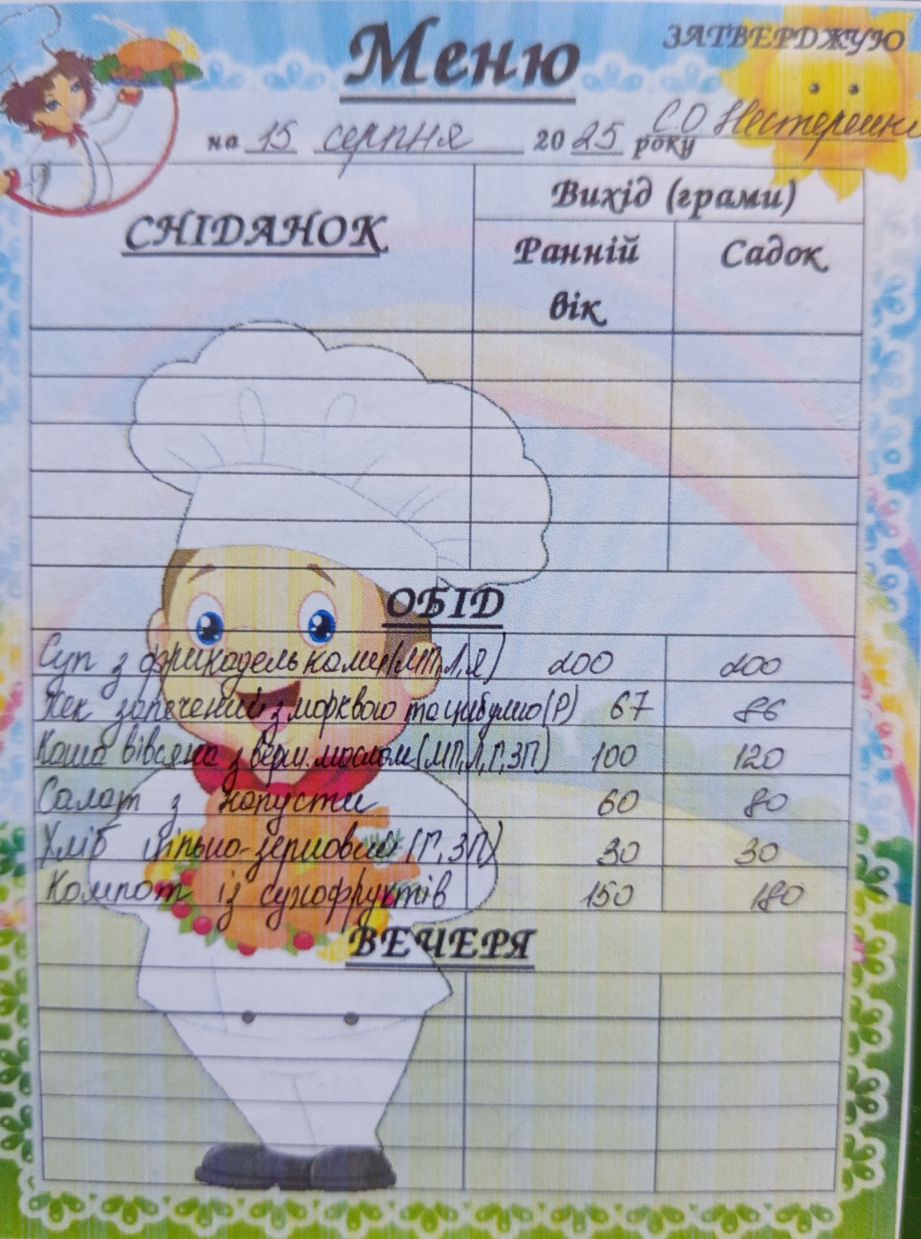 Меню
ЗАТВЕРДЖУЮ
на 15 серпня 2025 року С.О
СНІДАНОК
Вихід (грами)
Ранній вік
Садок
ОБІД
Суп з фрикадельками (МП,Л,Я) 200 200
Хек запечений з морквою та цибулею (Р) 67 86
Каша вівсяна з верш. маслом (МП,Л,Г,ЗП) 100 120
Салат з капусти 60 80
Хліб цільно-зерновий (Г,ЗП) 30 30
Компот із сухофруктів 150 180
ВЕЧЕРЯ